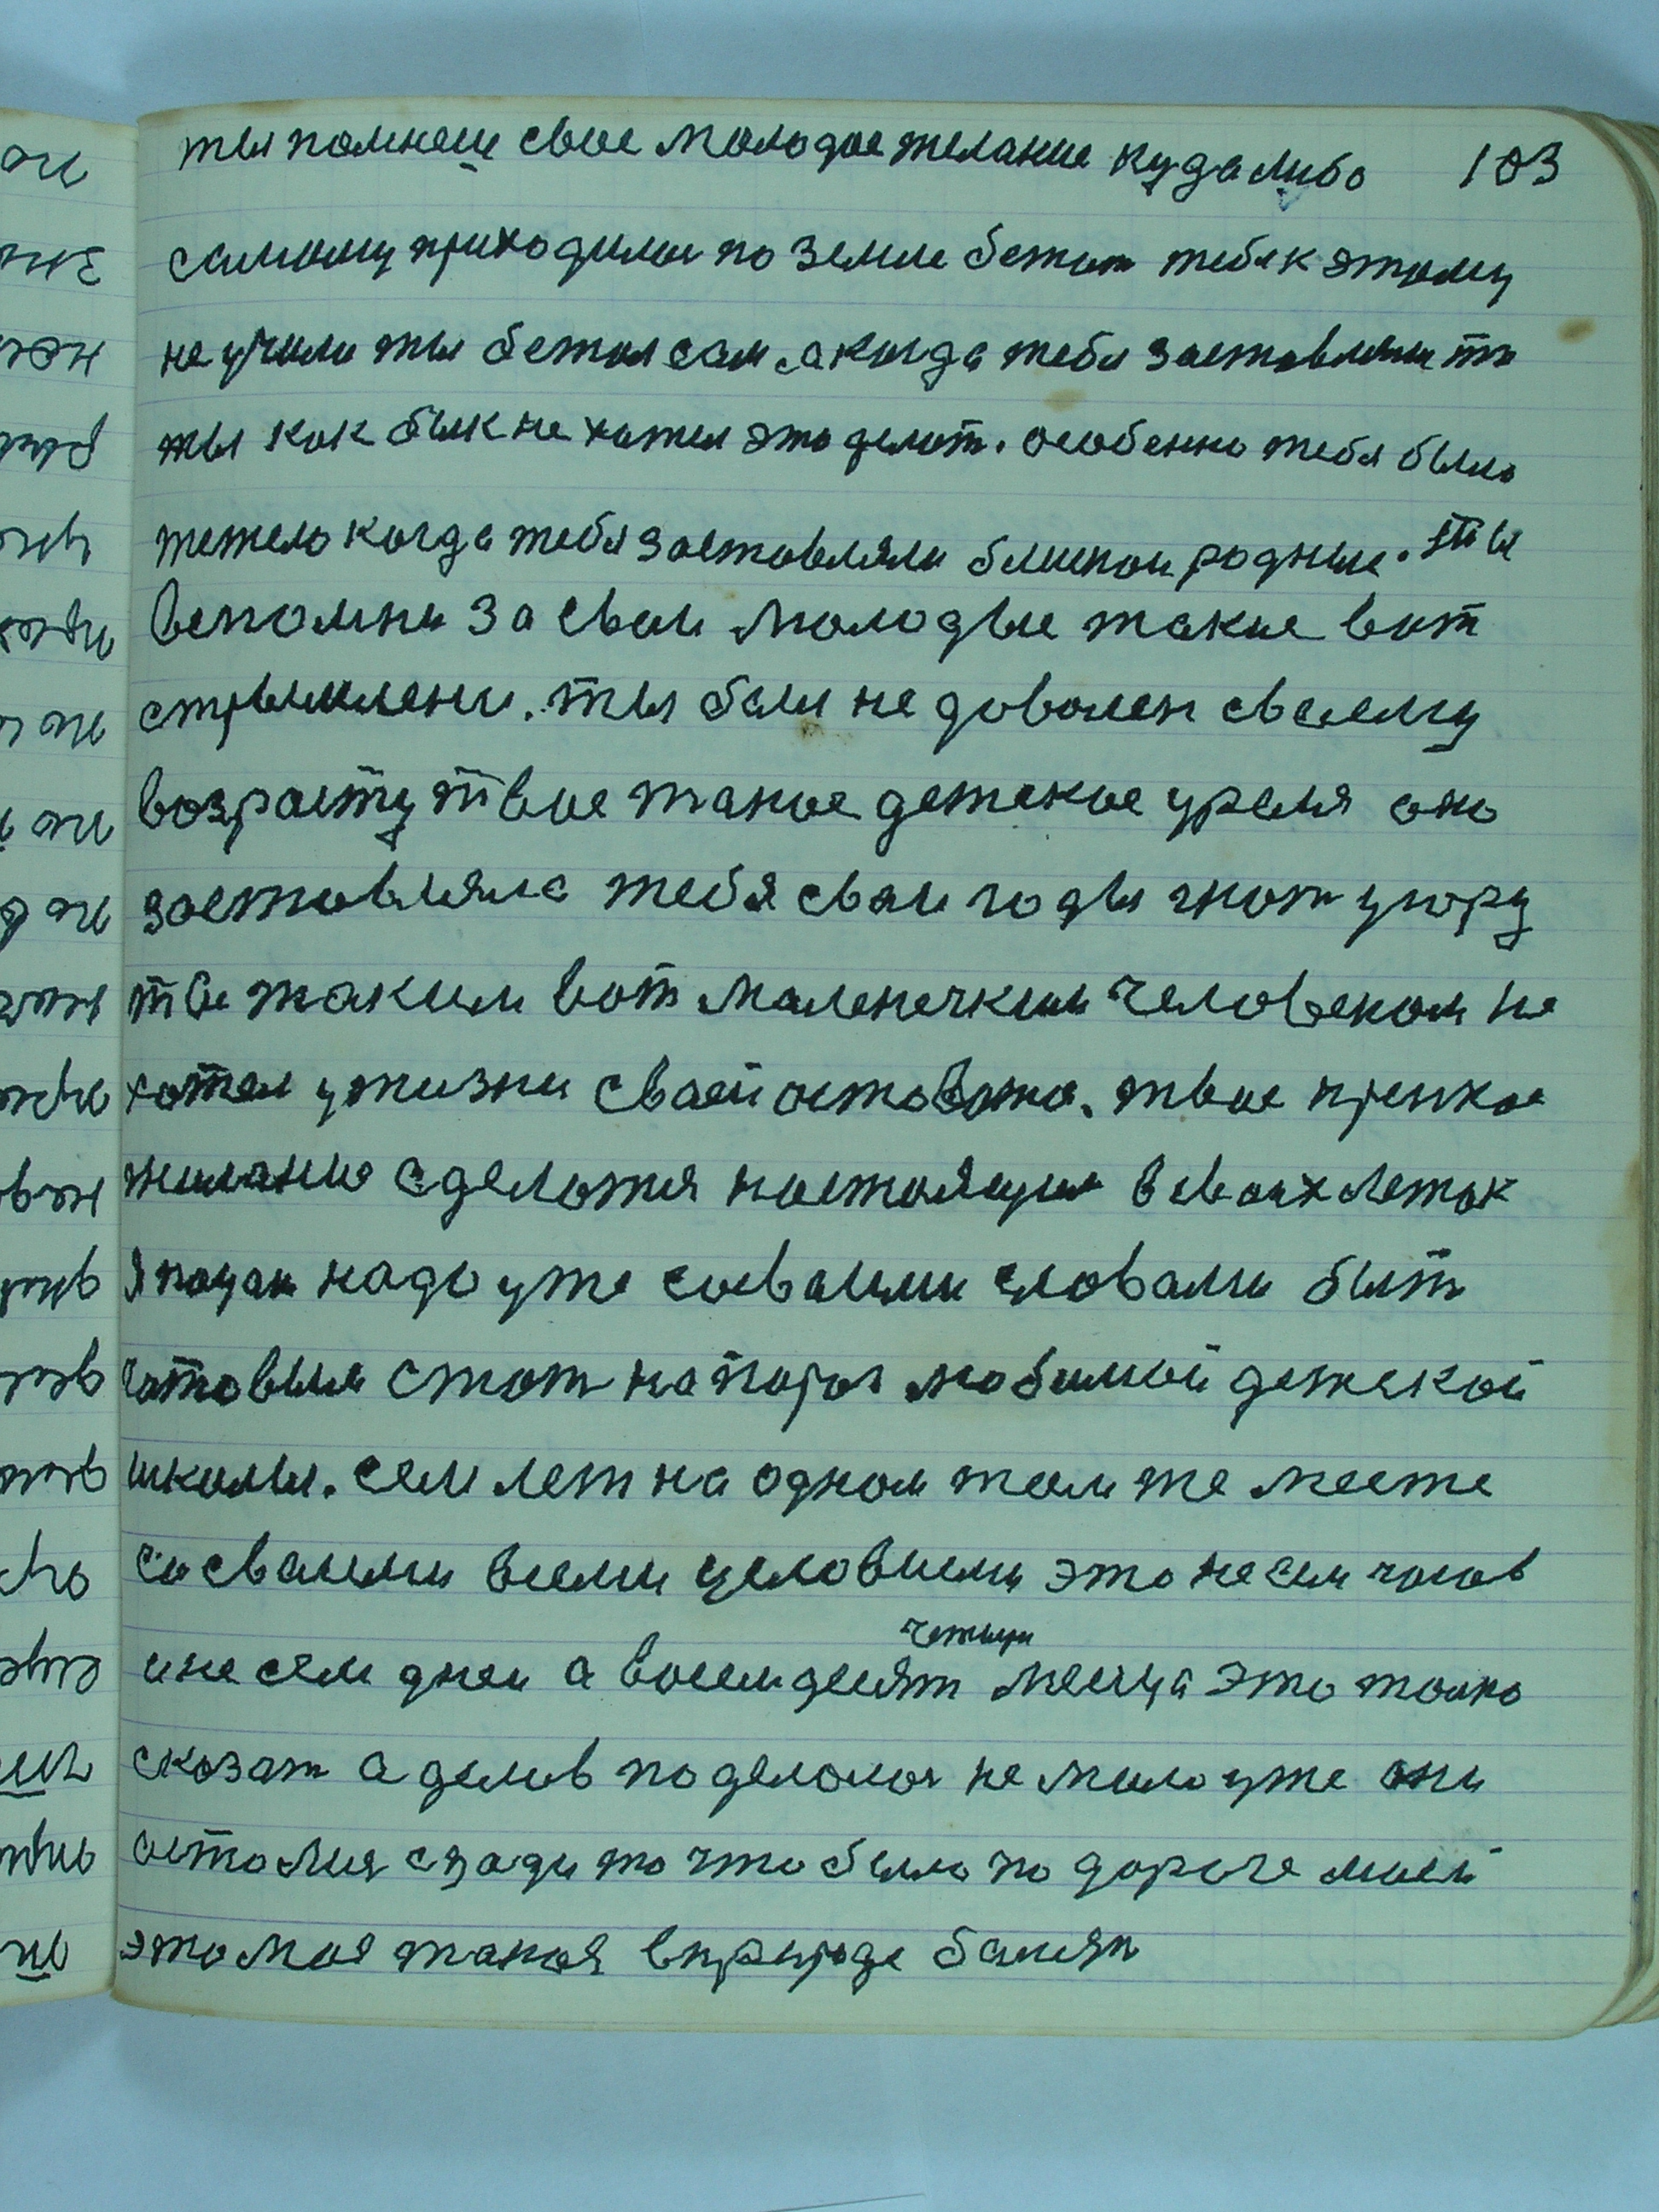 ты помнеш свое молодое желание куда либо 103
самому приходилос по земле бежат тебя к этому
не учили ты бежал сам. а когда тебя заставляли то
ты как бык не хотел это делат. особенно тебя было
тежело когда тебя заставляли близкои родные. ты
вспомни за свои молодые такие вот
стрымлени. ты был не доволен своему
возрасту твое такое детское уремя оно
заставляло тебя свои годы гнат угору
ты таким вот маленечким человеком не
хотел ужизни своей оставатся. твое
желание сделатся настоящим в своих летах
я пацан надо уже сосвоими словами быт
готовым стат на порог любимой детской
школы. сем лет на одном том же месте
со своими всеми условиеми это не сем часов
и не сем днеи а восемдесят четыри месяца это толко
сказат а делов поделалос не мало уже они
осталися сзади то что было по дороге моей
это моя такая вприроде болезн